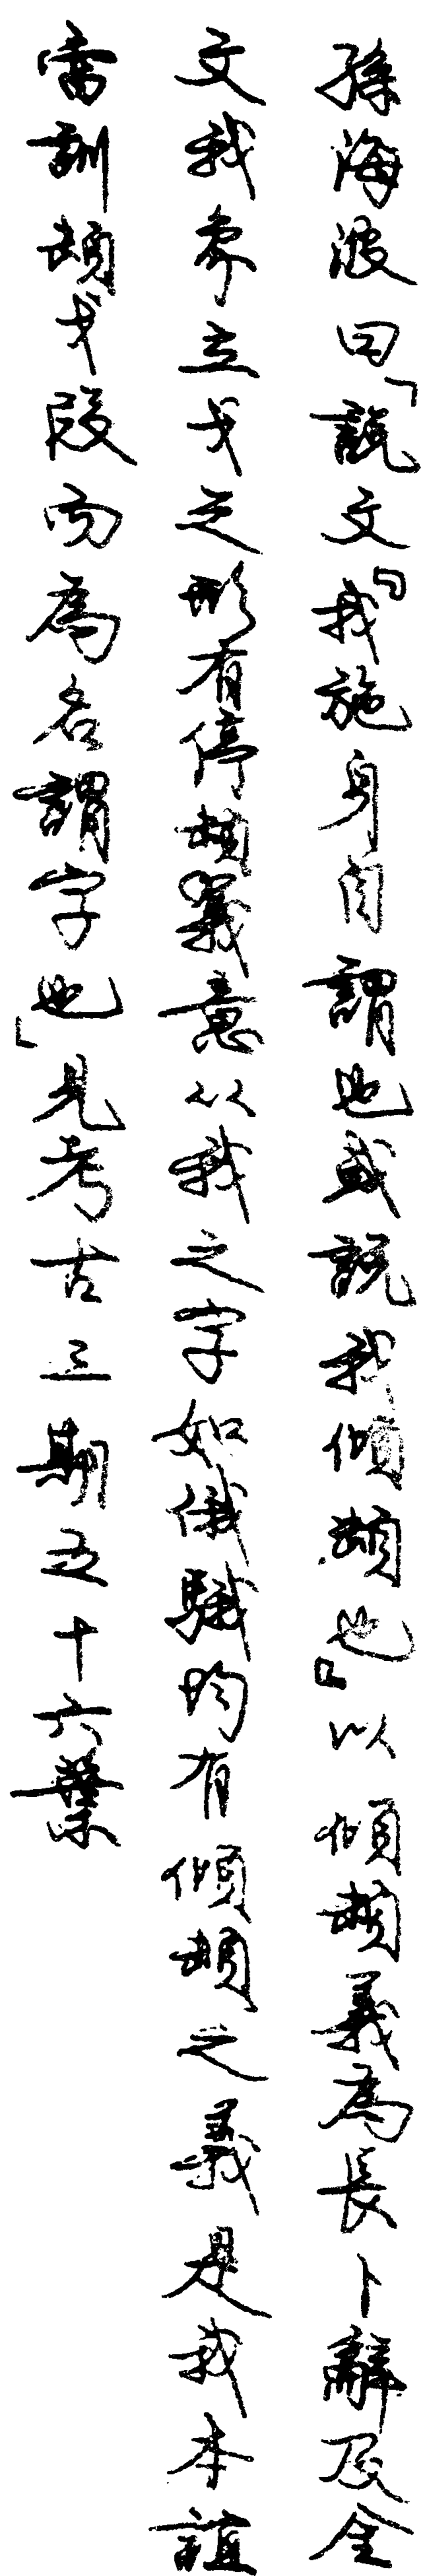 孫海波曰「說文『我施身自謂也或說我傾頓也』以傾頓義為長卜辭及金
文我象立戈之形有停頓義意从我之字如俄騀均有傾頓之義是我本誼
當訓頓戈段而為名謂字也」見考古三期五十六葉